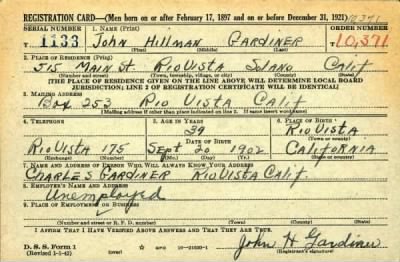 REGISTRATION CARD—(Men born on or after February 17, 1897 and on or before December 31, 1921)
SERIAL NUMBER 1. NAME (Print) ORDER NUMBER
1133 JOHN HILLMAN GARDINER 10,371
(First) (Middle) (Last)
2. PLACE OF RESIDENCE (Print)
515 MAIN St RIO VISTA SOLANO CALIF
(Number and street) (Town, township, village, or city) (County) (State)
[THE PLACE OF RESIDENCE GIVEN ON THE LINE ABOVE WILL DETERMINE LOCAL BOARD
JURISDICTION; LINE 2 OF REGISTRATION CERTIFICATE WILL BE IDENTICAL]
3. MAILING ADDRESS
Box 253 RIO VISTA CALIF
[Mailing address if other than place indicated on line 2. If same insert word same]
4. TELEPHONE 5. AGE IN YEARS 6. PLACE OF BIRTH
39 RIO VISTA
DATE OF BIRTH (Town or county)
RIO VISTA 175 SEPT 20 1902 CALIFORNIA
(Exchange) (Number) (Mo.) (Day) (Yr.) (State or country)
7. NAME AND ADDRESS OF PERSON WHO WILL ALWAYS KNOW YOUR ADDRESS
CHARLES GARDINER RIO VISTA CALIF.
8. EMPLOYER'S NAME AND ADDRESS
Unemployed
9. PLACE OF EMPLOYMENT OR BUSINESS
(Number and street or R. F. D. number) (Town) (County) (State)
I AFFIRM THAT I HAVE VERIFIED ABOVE ANSWERS AND THAT THEY ARE TRUE.
D. S. S. Form 1
(Revised 1-1-42) GPO 16—21630-1 John H Gardiner
(Registrant's signature)